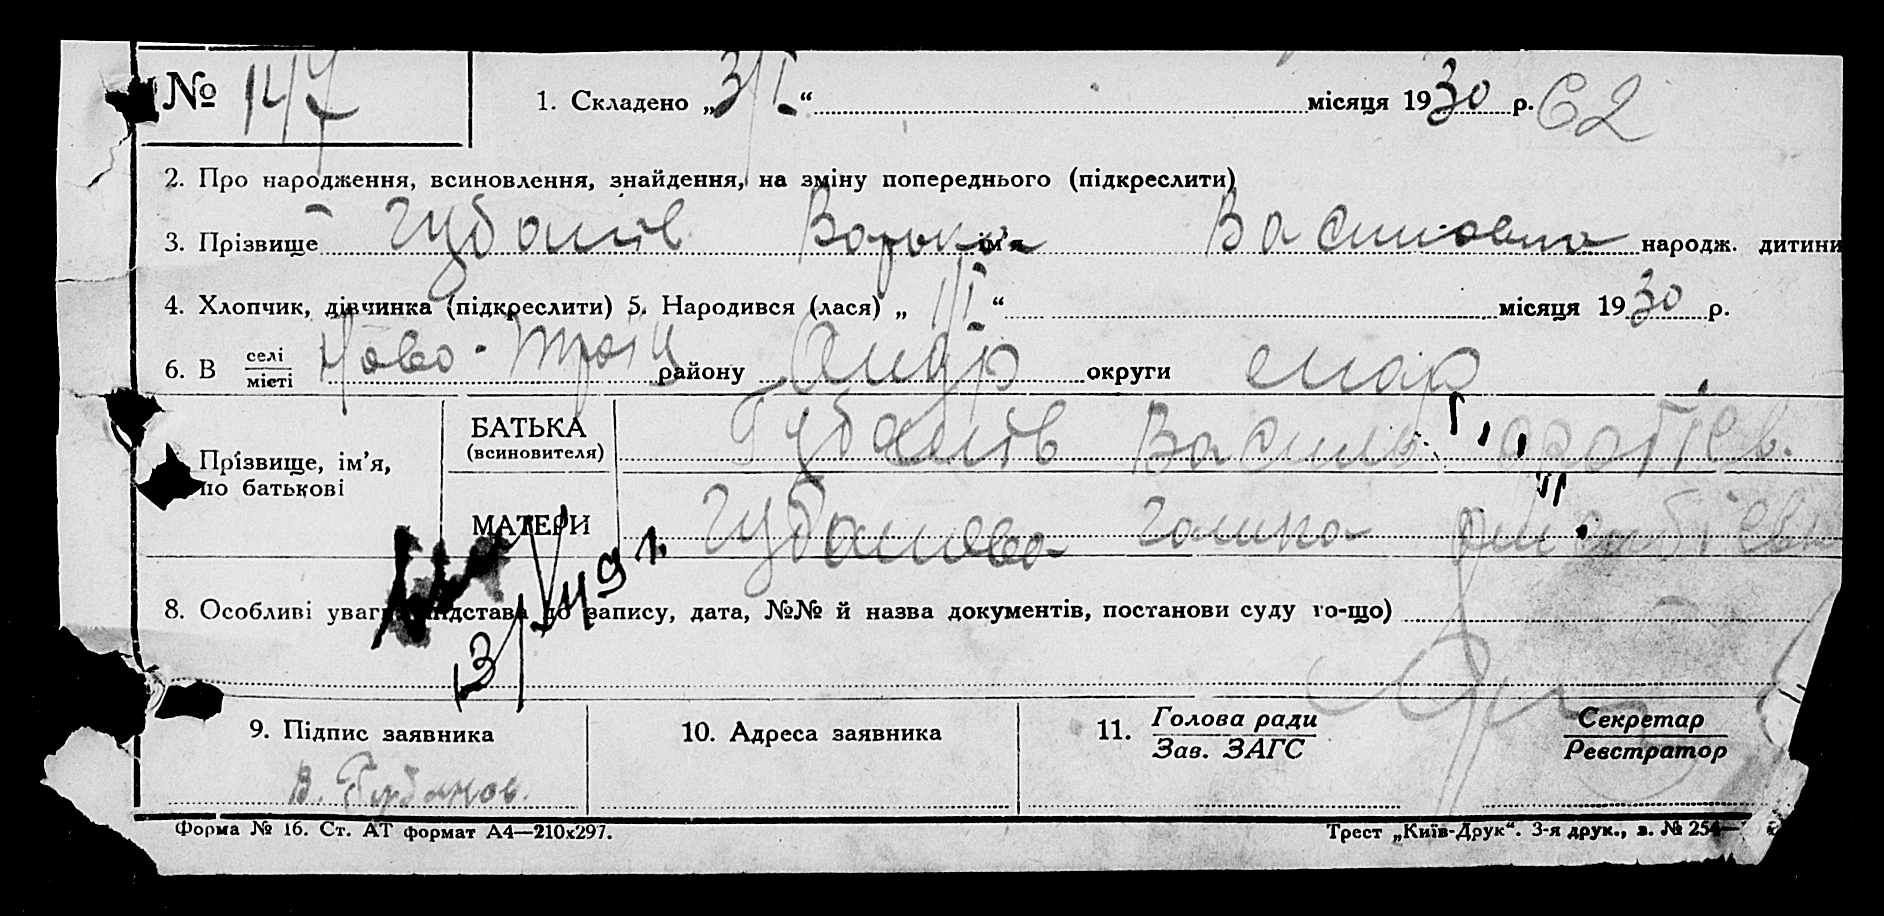 № 147 1. Складено „3/I“ місяця 1930 р. С2
2. Про народження, всиновлення, знайдення, на зміну попереднього (підкреслити)
3. Прізвище Губанів Варька ім'я Василовна народж. дитини
4. Хлопчик, дівчинка (підкреслити) 5. Народився (лася) „ 1/I “ місяця 1930 р.
6. В селі/місті Ново-Троїц району Андр округи
Прізвище, ім'я, по батькові
БАТЬКА (всиновителя) Губанів Василь
МАТЕРИ Губанова Галина
8. Особливі уваги підстава до запису, дата, №№ й назва документів, постанови суду то-що)
9. Підпис заявника
В. Губанов.
10. Адреса заявника
11. Голова ради / Зав. ЗАГС
Секретар / Реєстратор
Форма № 16. Ст. АТ формат А4—210х297.
Трест „Київ-Друк“. 3-я друк., з. № 254—